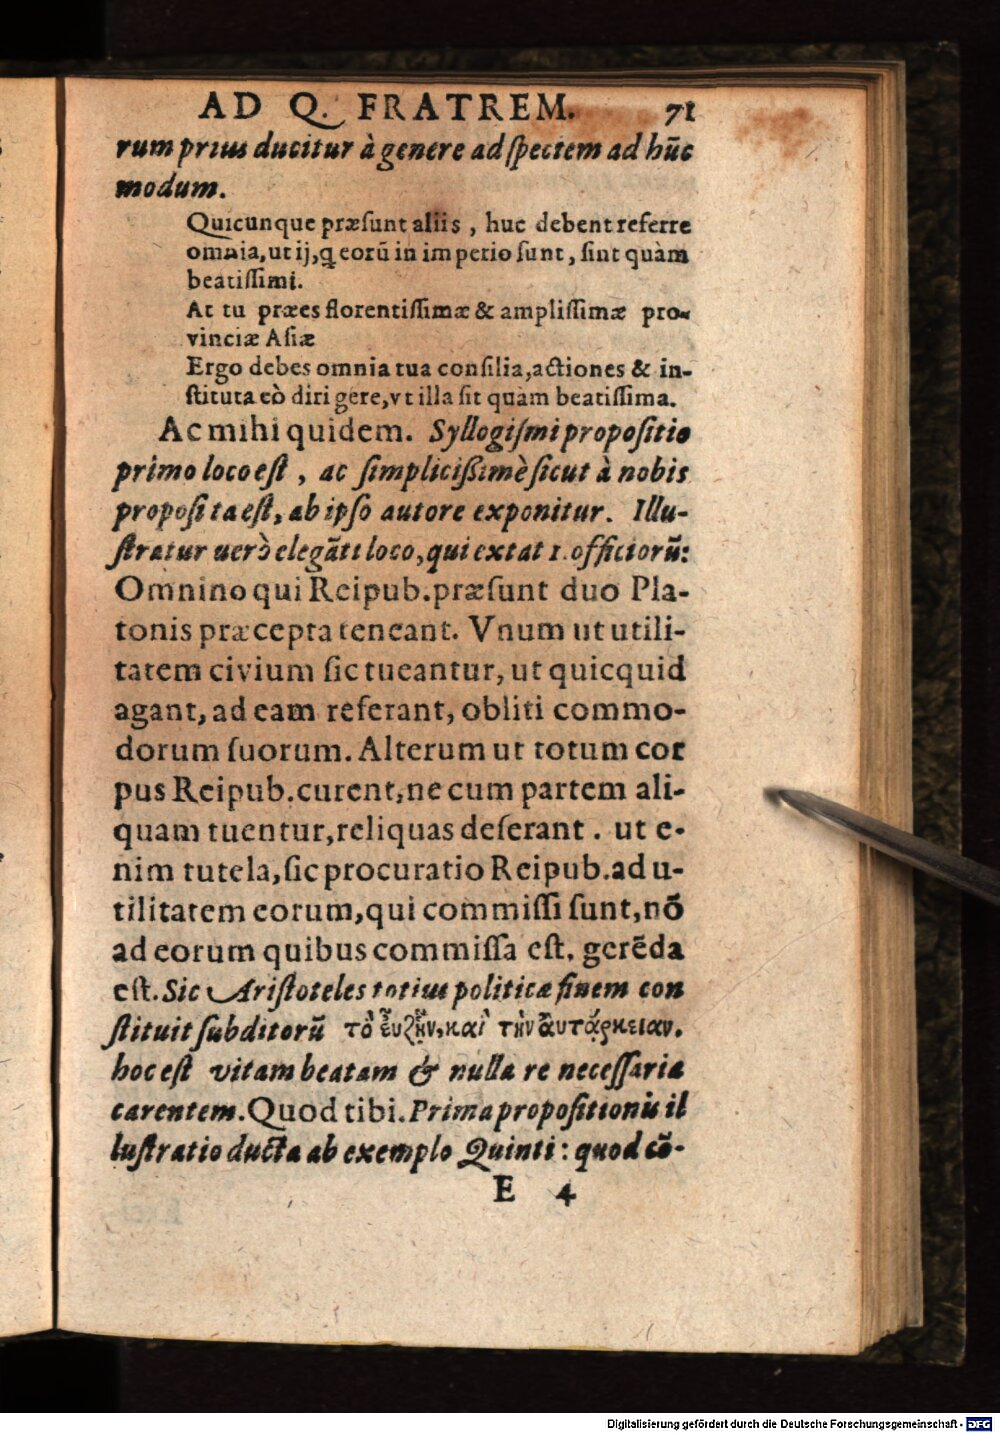 AD Q. FRATREM. 71
rum prius ducitur à genere ad speciem ad hũc
modum.
Quicunque præsunt aliis, huc debent referre
omnia, ut ij, q eorũ in imperio sunt, sint quàm
beatissimi.
At tu præes florentissimæ & amplissimæ pro-
vinciæ Asiæ
Ergo debes omnia tua consilia, actiones & in-
stituta eò dirigere, vt illa sit quàm beatissima.
Ac mihi quidem. Syllogismi propositio
primo loco est, ac simplicissimè sicut à nobis
proposita est, ab ipso autore exponitur. Illu-
stratur uerò elegãti loco, qui extat 1. officiorũ:
Omnino qui Reipub. præsunt duo Pla-
tonis præcepta teneant. Vnum ut utili-
tatem civium sic tueantur, ut quicquid
agant, ad eam referant, obliti commo-
dorum suorum. Alterum ut totum cor
pus Reipub. curent, ne cum partem ali-
quam tuentur, reliquas deserant. ut e-
nim tutela, sic procuratio Reipub. ad u-
tilitatem eorum, qui commissi sunt, nõ
ad eorum quibus commissa est, gerẽda
est. Sic Aristoteles totius politicæ finem con
stituit subditorũ τὸ εὖ ζῆν, καὶ τὴν αὐτάρκειαν.
hoc est vitam beatam & nulla re necessaria
carentem. Quod tibi. Prima propositionis il
lustratio ducta ab exemplo Quinti: quod cõ-
E 4
Digitalisierung gefördert durch die Deutsche Forschungsgemeinschaft - DFG